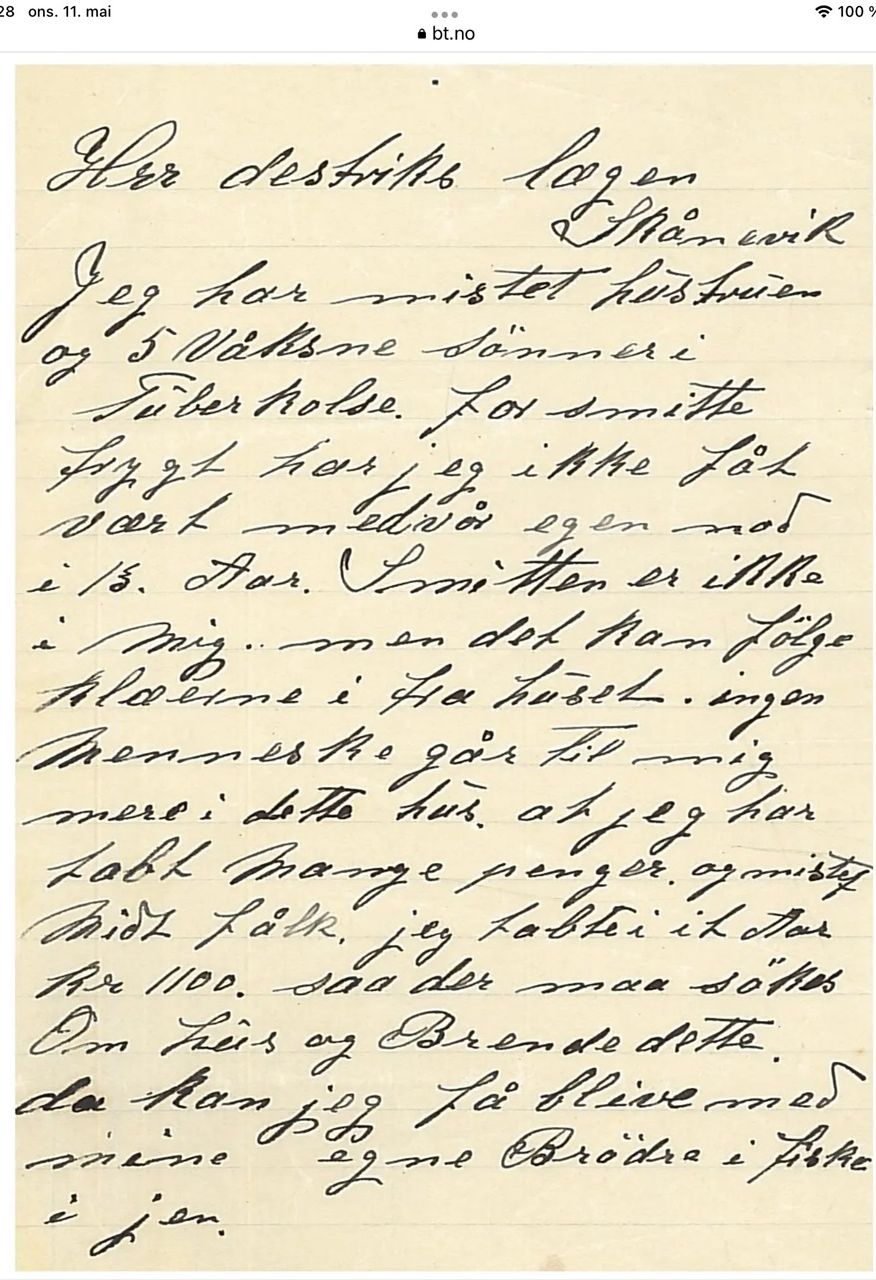 28 ons. 11. mai 100 %
bt.no
Herr destriks lægen
Skånevik
Jeg har mistet hustruen
og 5 Våksne sönner i
Tuberkolse. for smitte
frygt har jeg ikke fåt
vært med vår egen nod
i 13. Aar. Smitten er ikke
i mig.. men det kan fölge
klæerne i fra huset. ingen
Menneske går til mig
mere i dette hus. at jeg har
tabt Mange penger. og mistet
Midt fålk. jeg tabte i it Aar
Kr 1100. saa der maa sökes
Om hus og Brende dette.
da kan jeg få blive med
mine egne Brödre i fiske
i jen.